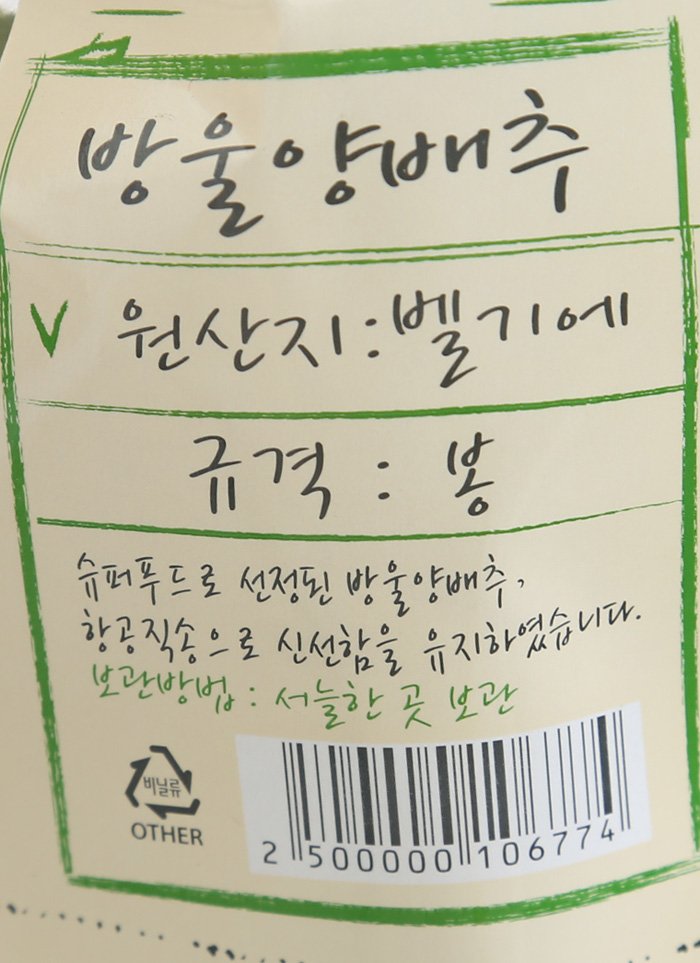 방울양배추
원산지:벨기에
규격 : 봉
슈퍼푸드로 선정된 방울양배추,
항공직송으로 신선함을 유지하였습니다.
보관방법 : 서늘한 곳 보관
비닐류
OTHER
2 500000 106774